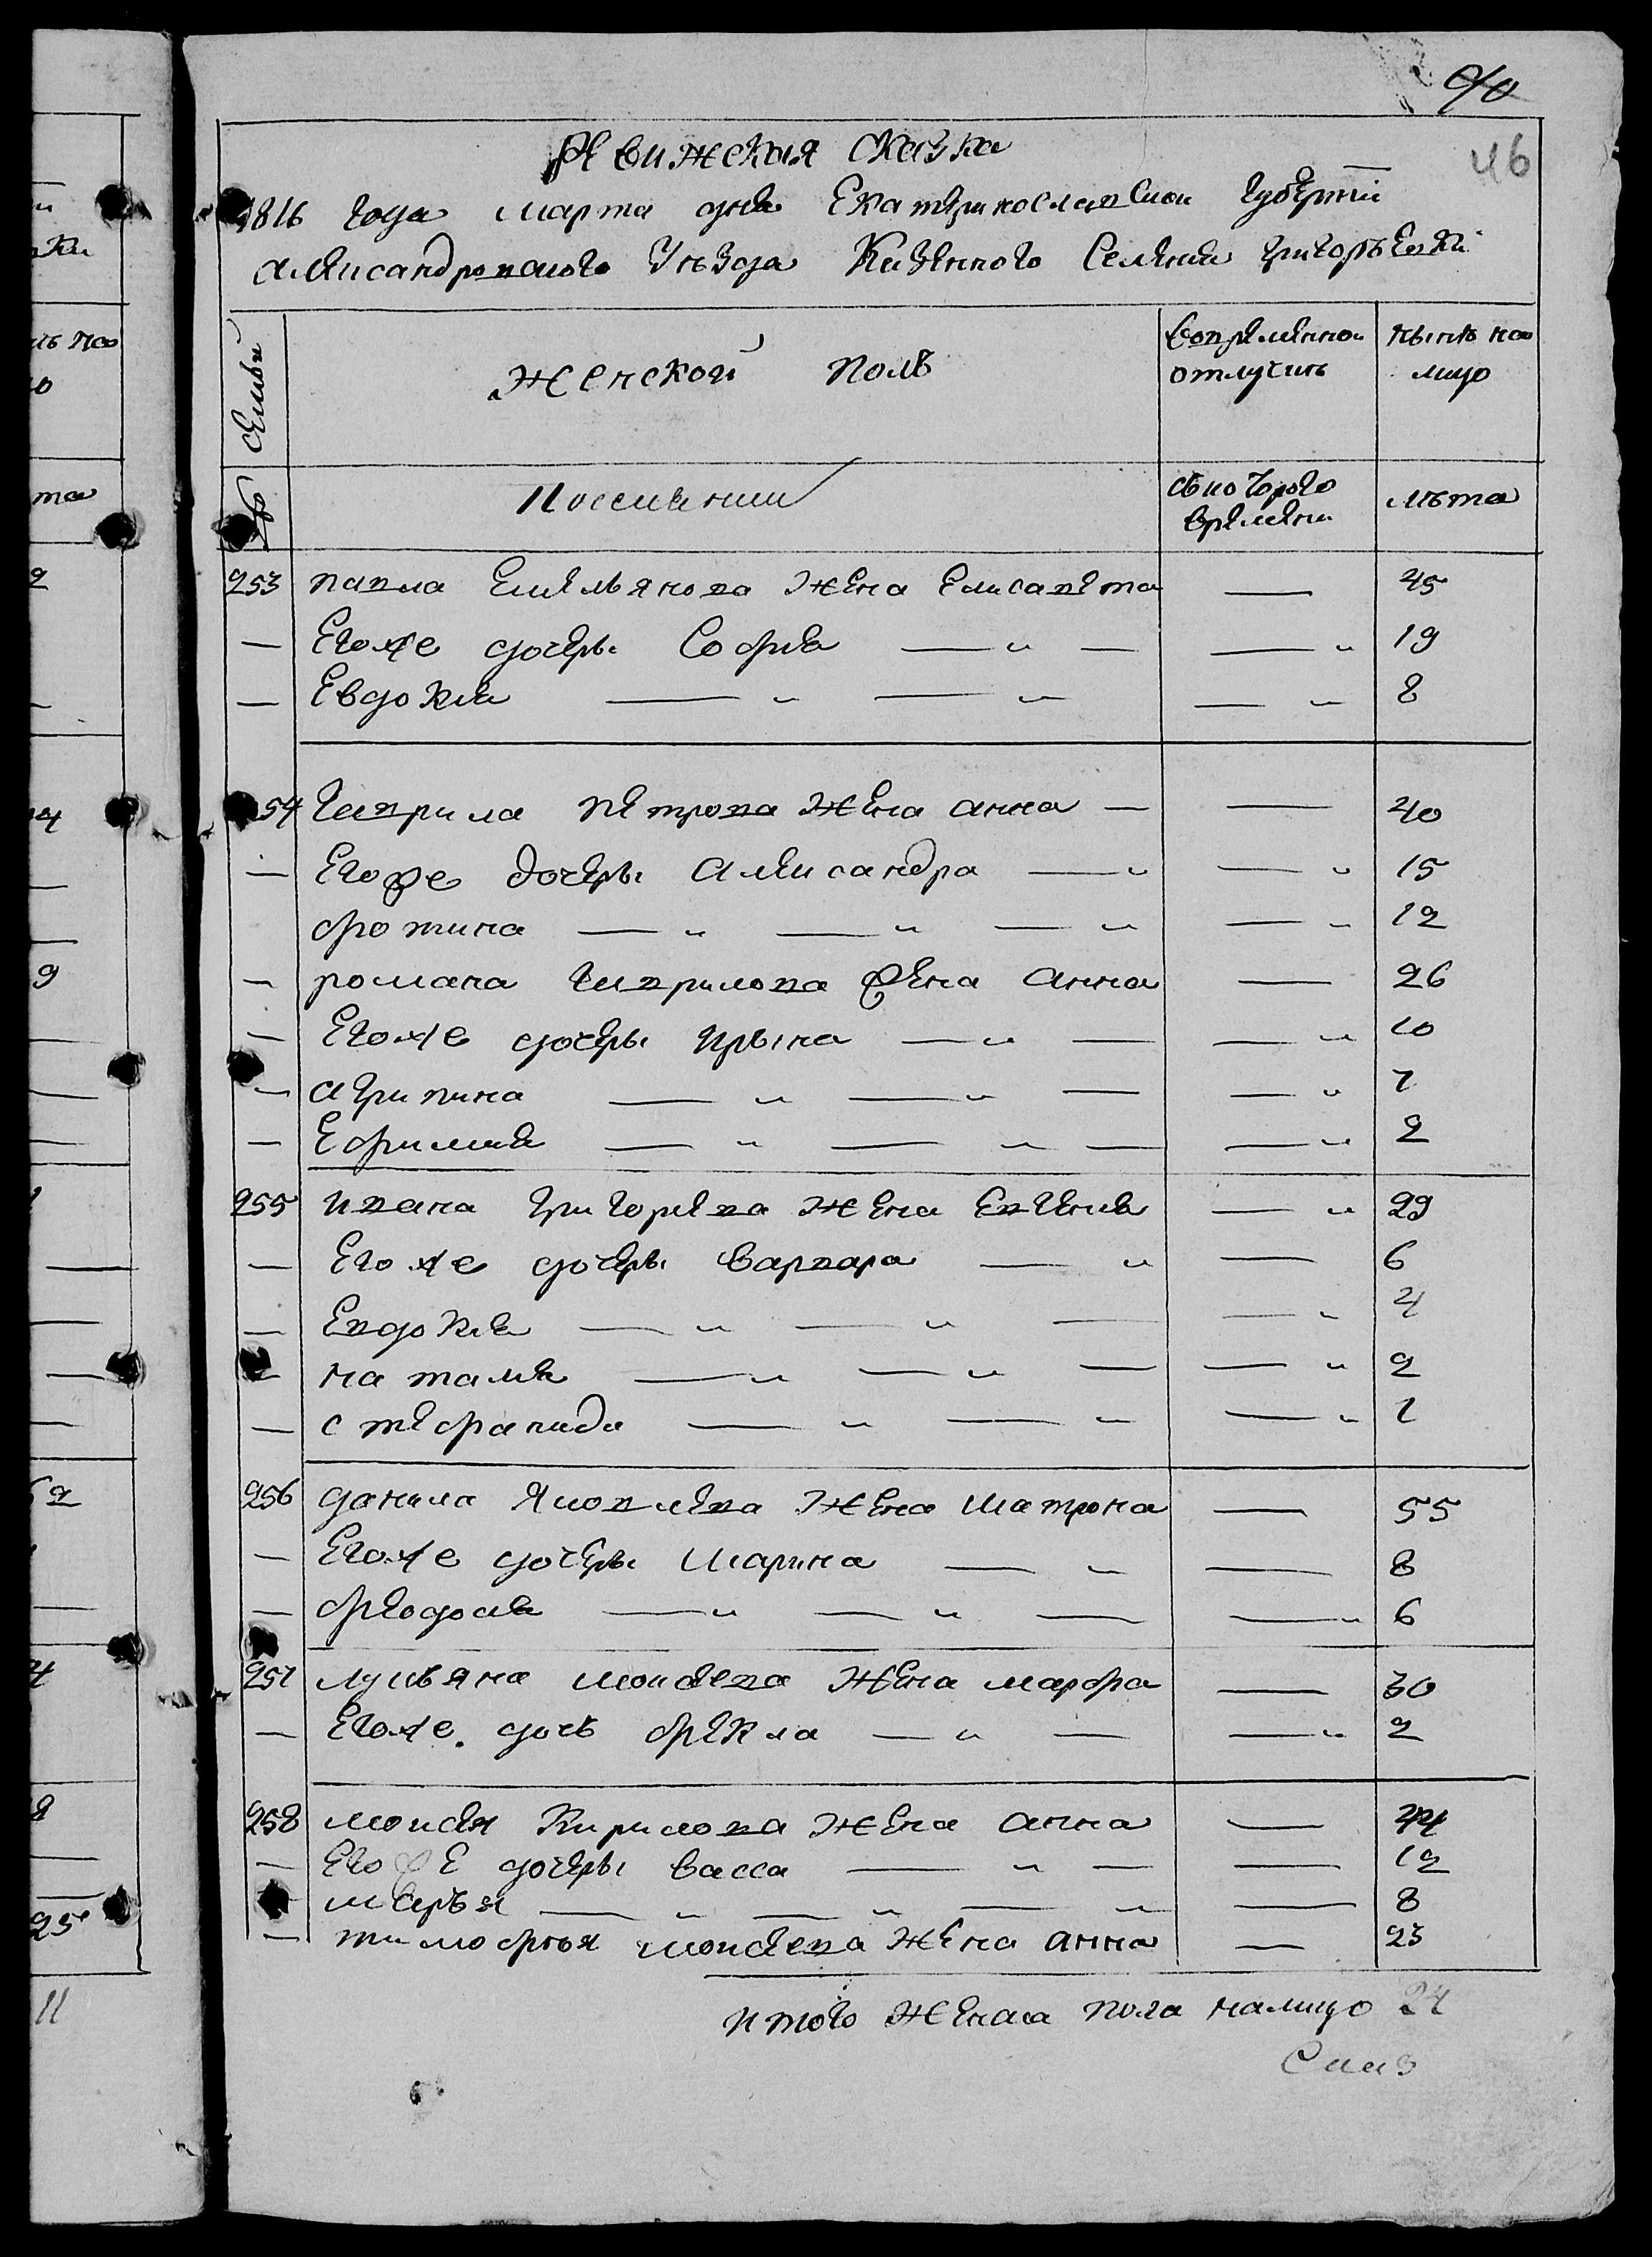 90
46
Ревижская сказка
1816 года марта дня Екатеринославскои Губернїи
александровского Уезда Казенного Селения григорьевки
семьи
женской полъ
вовременнои отлучкѣ
нынѣ на лицо
№
Поселянки
съ которого времени
лѣта
253 павла Емельянова жена Елисавета — 45
— Егоже дочеры София — „ — — „ 19
— Евдокия — „ — „ — „ 8
254 гаврила петрова жена анна — — 40
— Егоже дочеры александра — „ — „ 15
фотина — „ — „ — „ — „ 12
— романа гаврилова жена анна — 26
— Егоже дочеры ирына — „ — — „ 10
— агрипина — „ — „ — — „ 7
— Ефимия — „ — „ — — „ 2
255 ивана григориева жена Евгения — „ 29
— Егоже дочеры варвара — „ — 6
— Евдокия — „ — „ — — „ 4
— наталия — „ — „ — — „ 2
— стефанида — „ — „ — „ 1
256 данила Яковлева жена матрона — 55
— Егоже дочеры марина — „ — 8
— феодосия — „ — „ — — „ 6
257 лукьяна моисеева жена марфа — 30
— Егоже дочь фекла — „ — — „ 2
258 моисея Кирилова жена анна — 44
— Егоже дочеры васса — „ — — 12
— марья — „ — „ — „ — 8
— тимофея моисеева жена анна — 23
итого женска пола налицо 24
ки
на
та
2
4
9
62
4
25
11